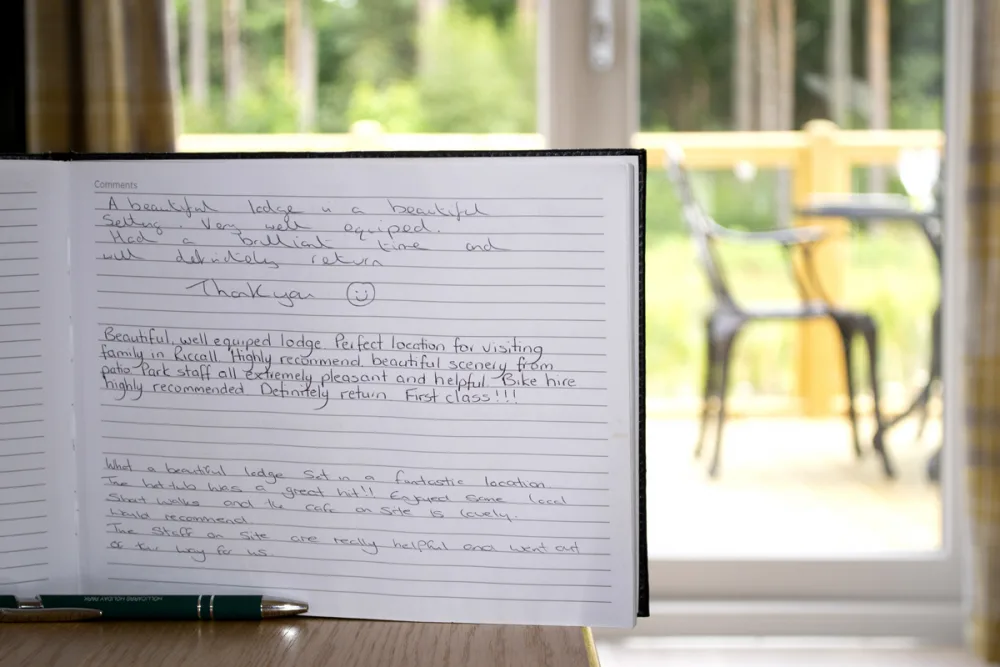 Comments
A beautiful lodge in a beautiful
Setting. Very well equiped.
Had a brilliant time and
will definitely return
Thank you
Beautiful, well equiped lodge Perfect location for visiting
family in Riccall Highly recommend beautiful scenery from
patio Park staff all extremely pleasant and helpful Bike hire
highly recommended Definitely return First class!!!
What a beautiful lodge set in a fantastic location.
The hot tub was a great hit!! Enjoyed some local
Short walks and the cafe on site is lovely.
Would recommend.
The staff on site are really helpful and went out
of the way for us.
HOLIDAY PARK